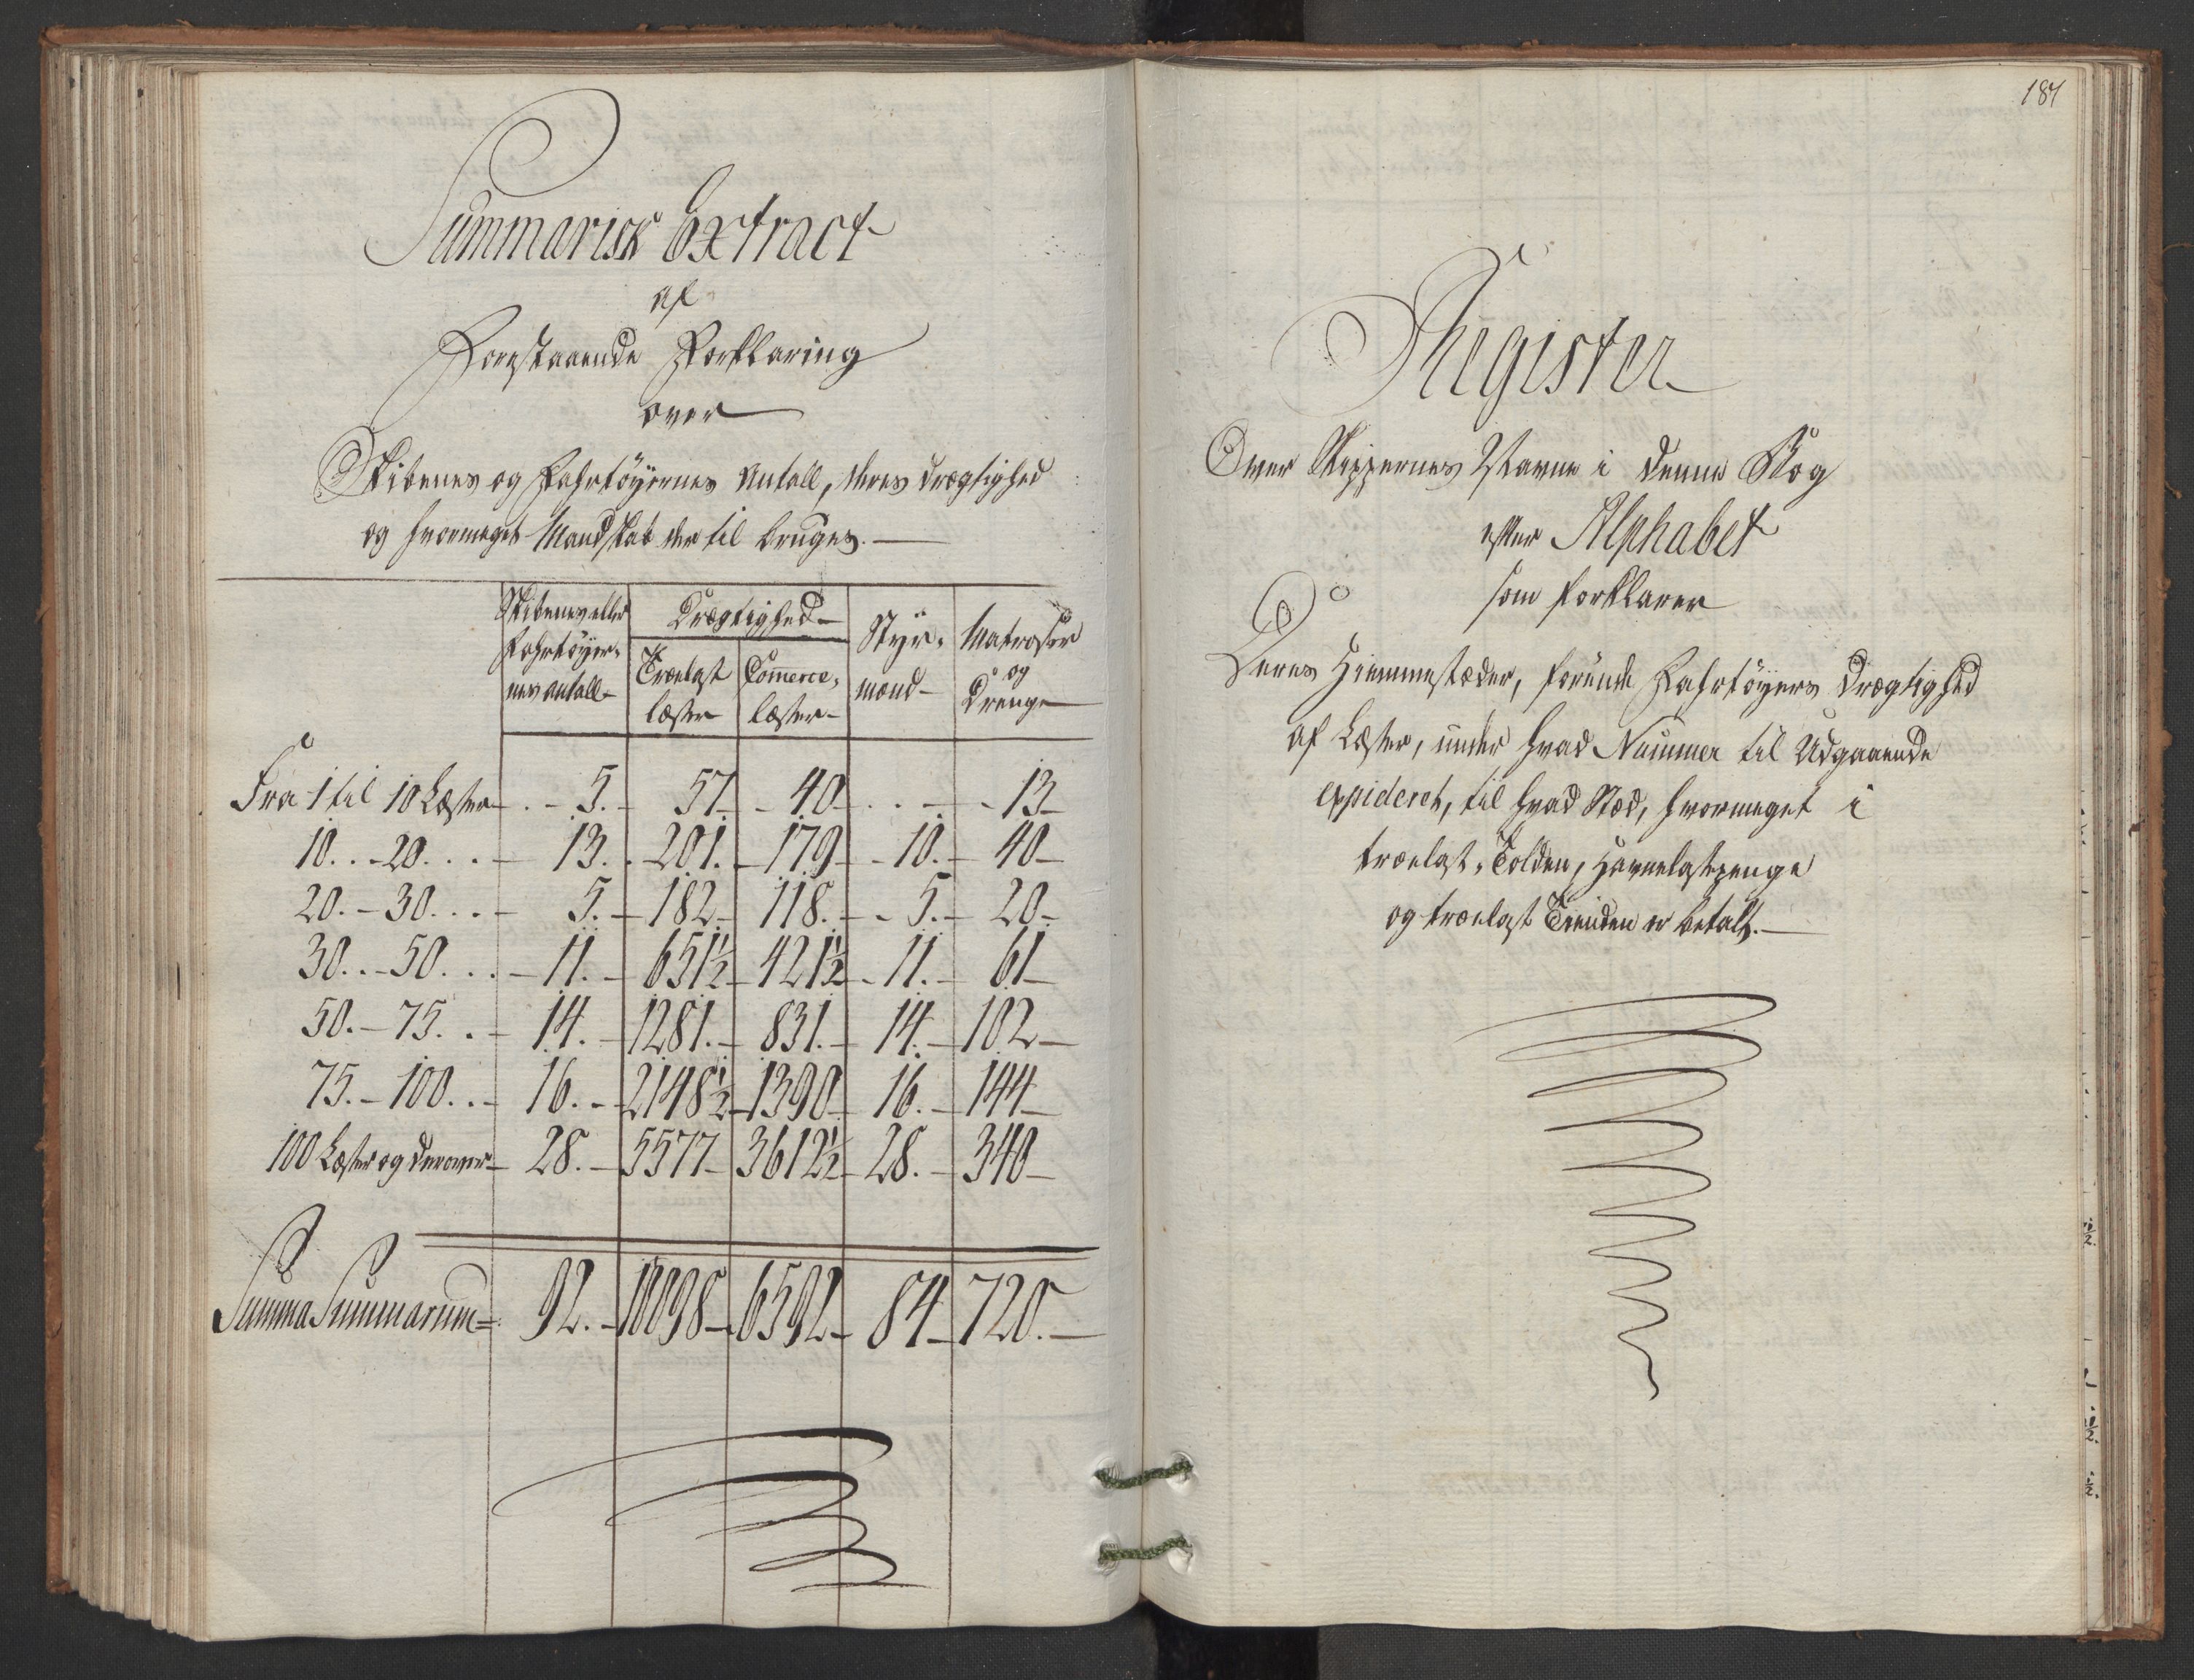 Summarisk Extract
af
Forestaaende Forklaring
over
Skibenes og Fahrtøyernes Antall, deres Drægtighed
og hvormeget Mandskab der til bruges.
Skibenes eller Fahrtøyernes antall
Drægtighed
Trælast læster
Comerce, læster
Styrmænd
Matroser og Drenge
Fra 1 til 10 Læster - 5. - 57 - 40 - - 13
10. - 20. - 13. - 201. - 179 - 10. - 40
20. - 30. - 5. - 182 - 118. - 5. - 20
30. - 50. - 11. - 651½ - 421½ - 11. - 61
50. - 75. - 14. - 1281. - 831. - 14. - 102
75. - 100. - 16. - 2148½ - 1390 - 16. - 144
100 Læster og derover - 28. - 5577 - 3612½ - 28. - 340
Summa Summarum = 92. - 10098 - 6592 - 84 - 720.
187
Register
Over Skippernes Navne i denne Bog
efter Alphabet
som forklarer
Deres Hiemmestæder, førende Fahrtøyers Drægtighed
af Læster, under hvad Nummer til Udgaaende
expideret, til hvad Stæd, hvormeget i
trælast-Tolden, Havnelastpenge
og trælast Tienden er betalt.